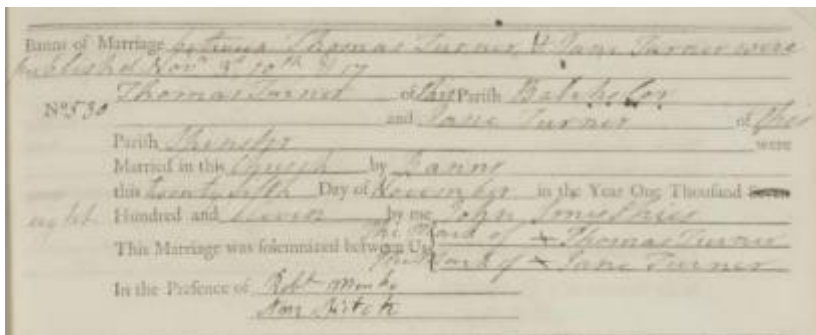 Banns of Marriage between Thomas Turner & Jane Turner were
published Novr 3d 10th & 17
No 530 Thomas Turner of this Parish Batchelor
and Jane Turner of this
Parish Spinster were
Married in this Church by Banns
this twenty fifth Day of November in the Year One Thousand Seven
eight Hundred and eleven by me John
This Marriage was solemnized between Us The Mark of x Thomas Turner
The Mark of x Jane Turner
In the Presence of Robt Monks